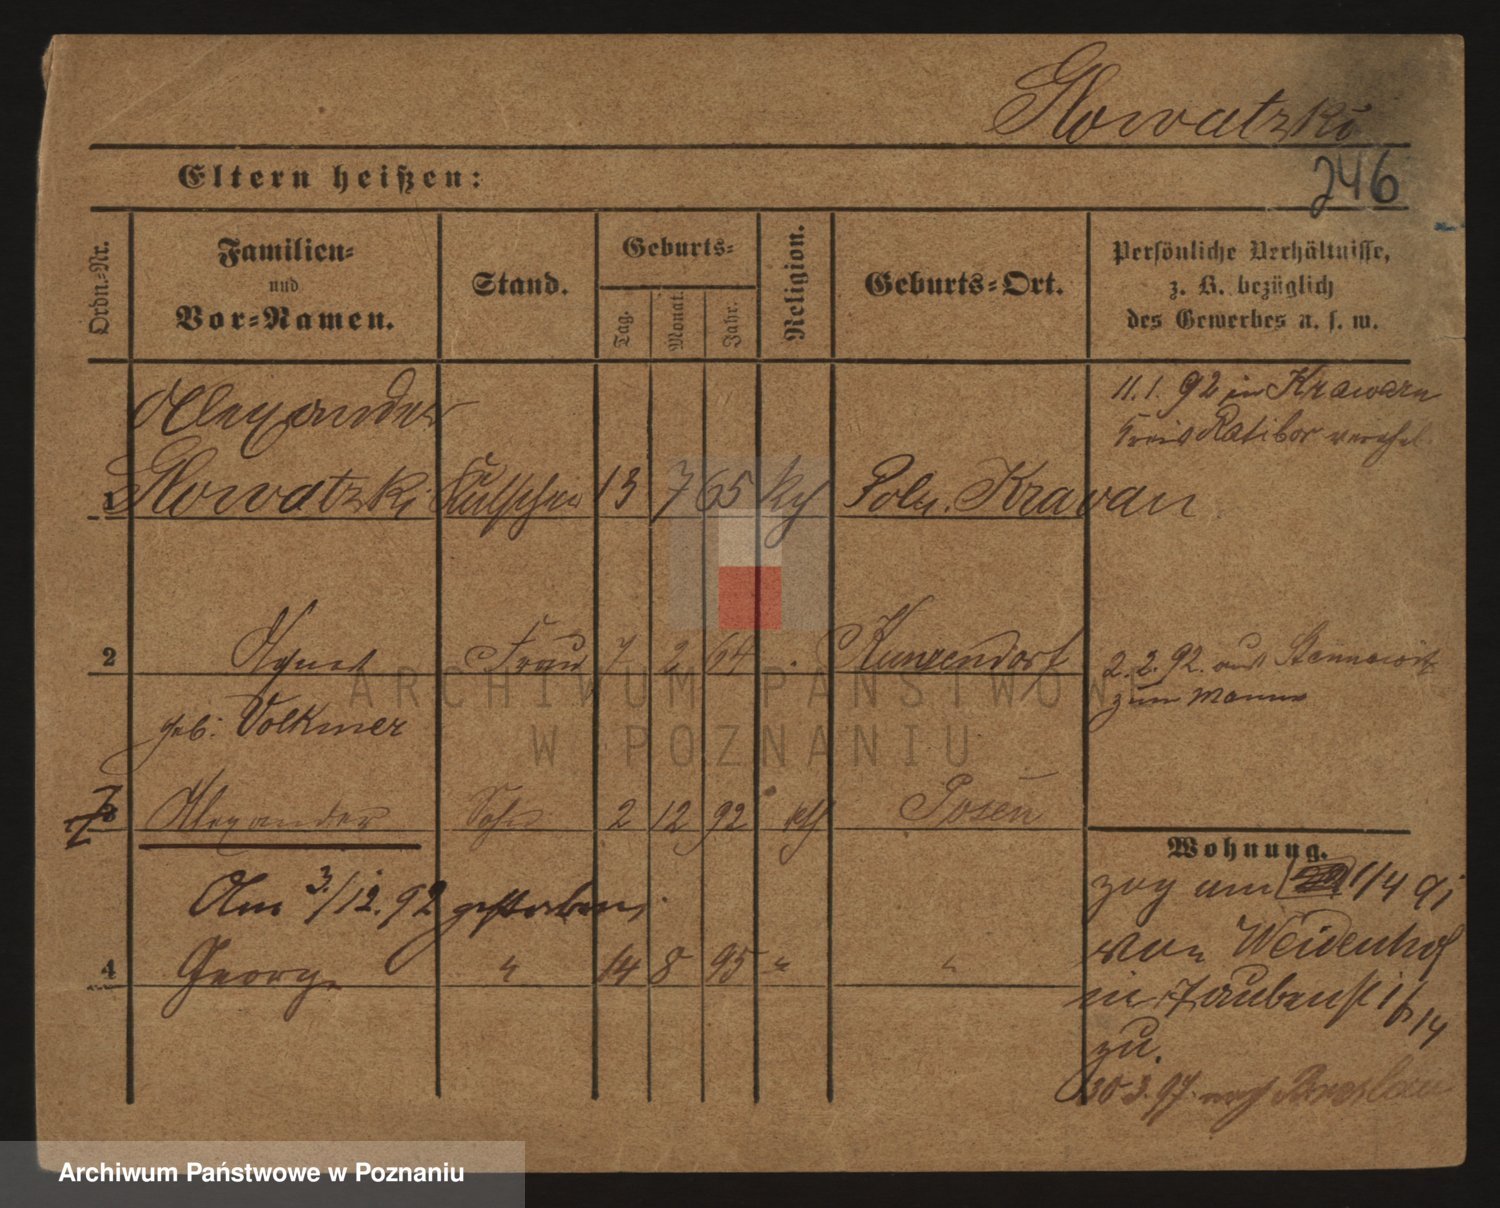 Glowatzki
246
Eltern heißen:
Ordn.-Nr.
Familien-
und
Vor-Namen.
Stand.
Geburts-
Tag.
Monat.
Jahr.
Religion.
Geburts-Ort.
Persönliche Verhältnisse,
z. B. bezüglich
des Gewerbes u. s. w.
Alexander
1 Glowatzki Kutscher 13 7 65 kth Poln. Kravarn
11.1.92 in Krawarn
Kreis Ratibor verehel.
2 Agnes Frau 7 2 64 Kunzendorf
geb. Volkmer
2.2.92. aus
zum Manne
3 Alexander Sohn 2 12 92 kth Posen
Am 3./12.92 gestorben.
4 George " 14 8 95 " "
Wohnung.
zog am 1/4 91
von Weidenhof
in Taubenst
zu.
30.3.97. nach Breslau
ARCHIWUM PAŃSTWOWE
W POZNANIU
Archiwum Państwowe w Poznaniu